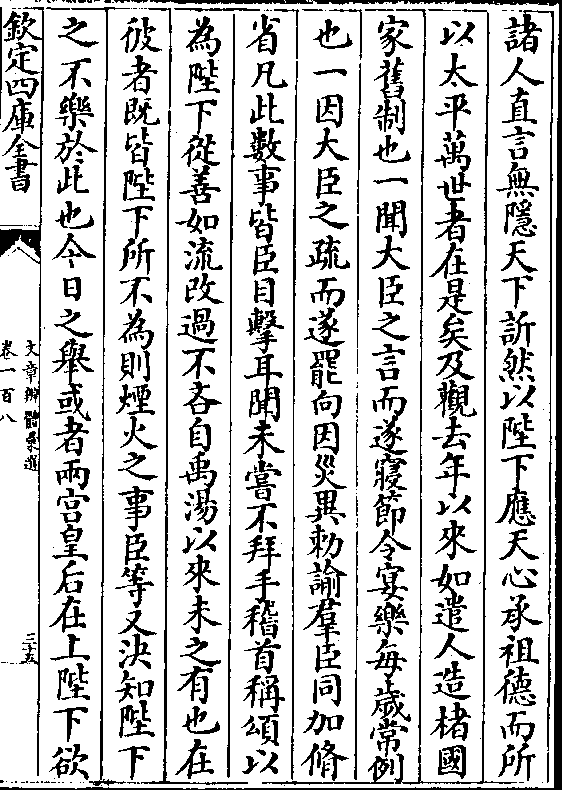 諸人直言無隱天下訢然以陛下應天心承祖德而所
以太平萬世者在是矣及觀去年以來如遣人造楮國
家舊制也一聞大臣之言而遂寢節令宴樂每歲常例
也一因大臣之疏而遂罷向因災異勅諭羣臣同加脩
省凡此數事皆臣目擊耳聞未嘗不拜手稽首稱頌以
為陛下從善如流改過不吝自禹湯以來未之有也在
彼者既皆陛下所不為則煙火之事臣等又決知陛下
之不樂於此也今日之舉或者兩宫皇后在上陛下欲
欽定四庫全書
文章辨體彙選
卷一百八
三十五